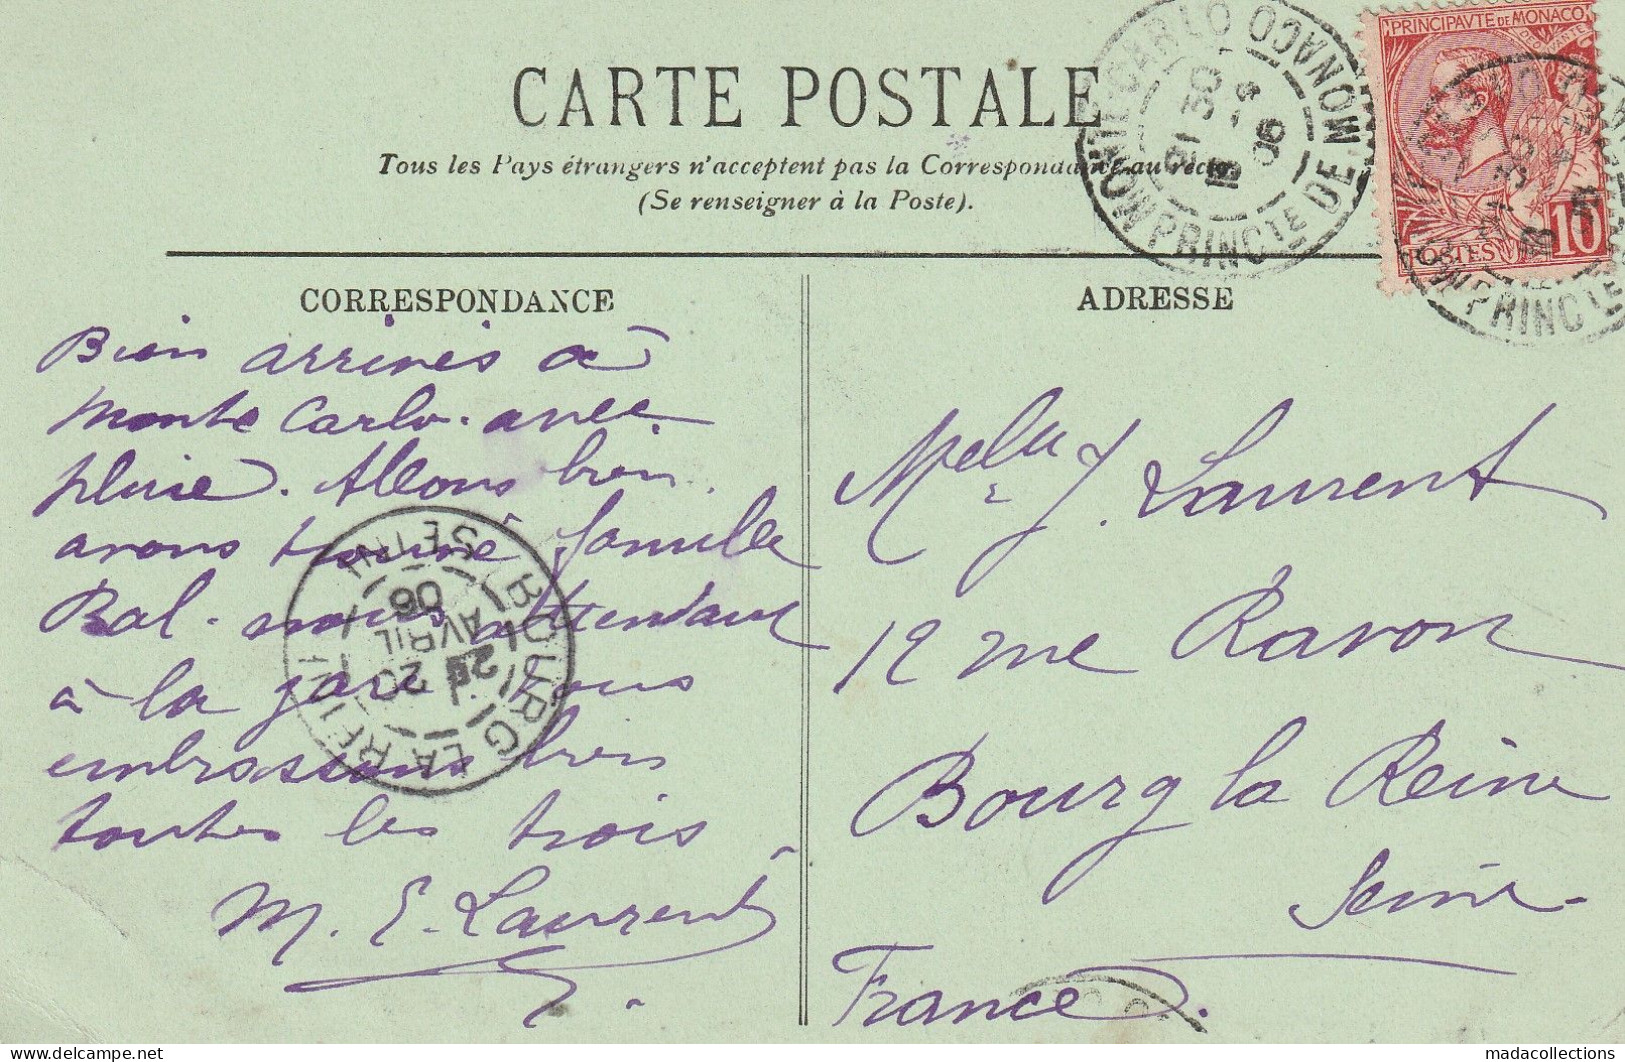 CARTE POSTALE
Tous les Pays étrangers n'acceptent pas la Correspondance au recto
(Se renseigner à la Poste).
MONTE CARLO MONACO
PRINCTE DE
PRINCIPAVTE DE MONACO
POSTES 10
PRINCTE
CORRESPONDANCE
Bien arrivés à
Monte Carlo. avec
pluie. Allons bien.
avons trouvé famille
Bal. nous attendant
à la gare. Vous
embrassons bien
toutes les trois
M. E. Laurent
BOURG LA REINE
SEINE
20
AVRIL
06
ADRESSE
J. Laurent
12 rue Ravon
Bourg la Reine
Seine
France.
madacollections
delcampe.net